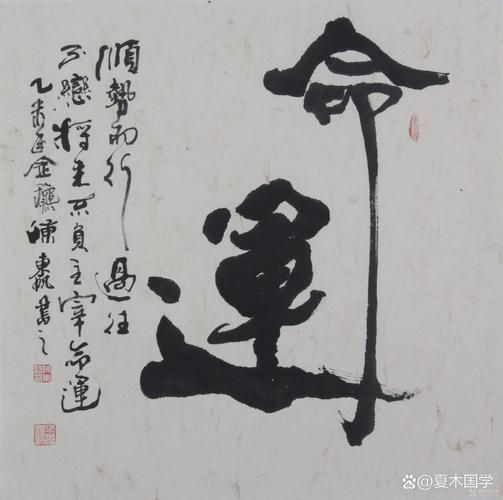 命運
順勢而行過往
不戀将来不負主宰命運
乙未年金龝 書之
夏木国学